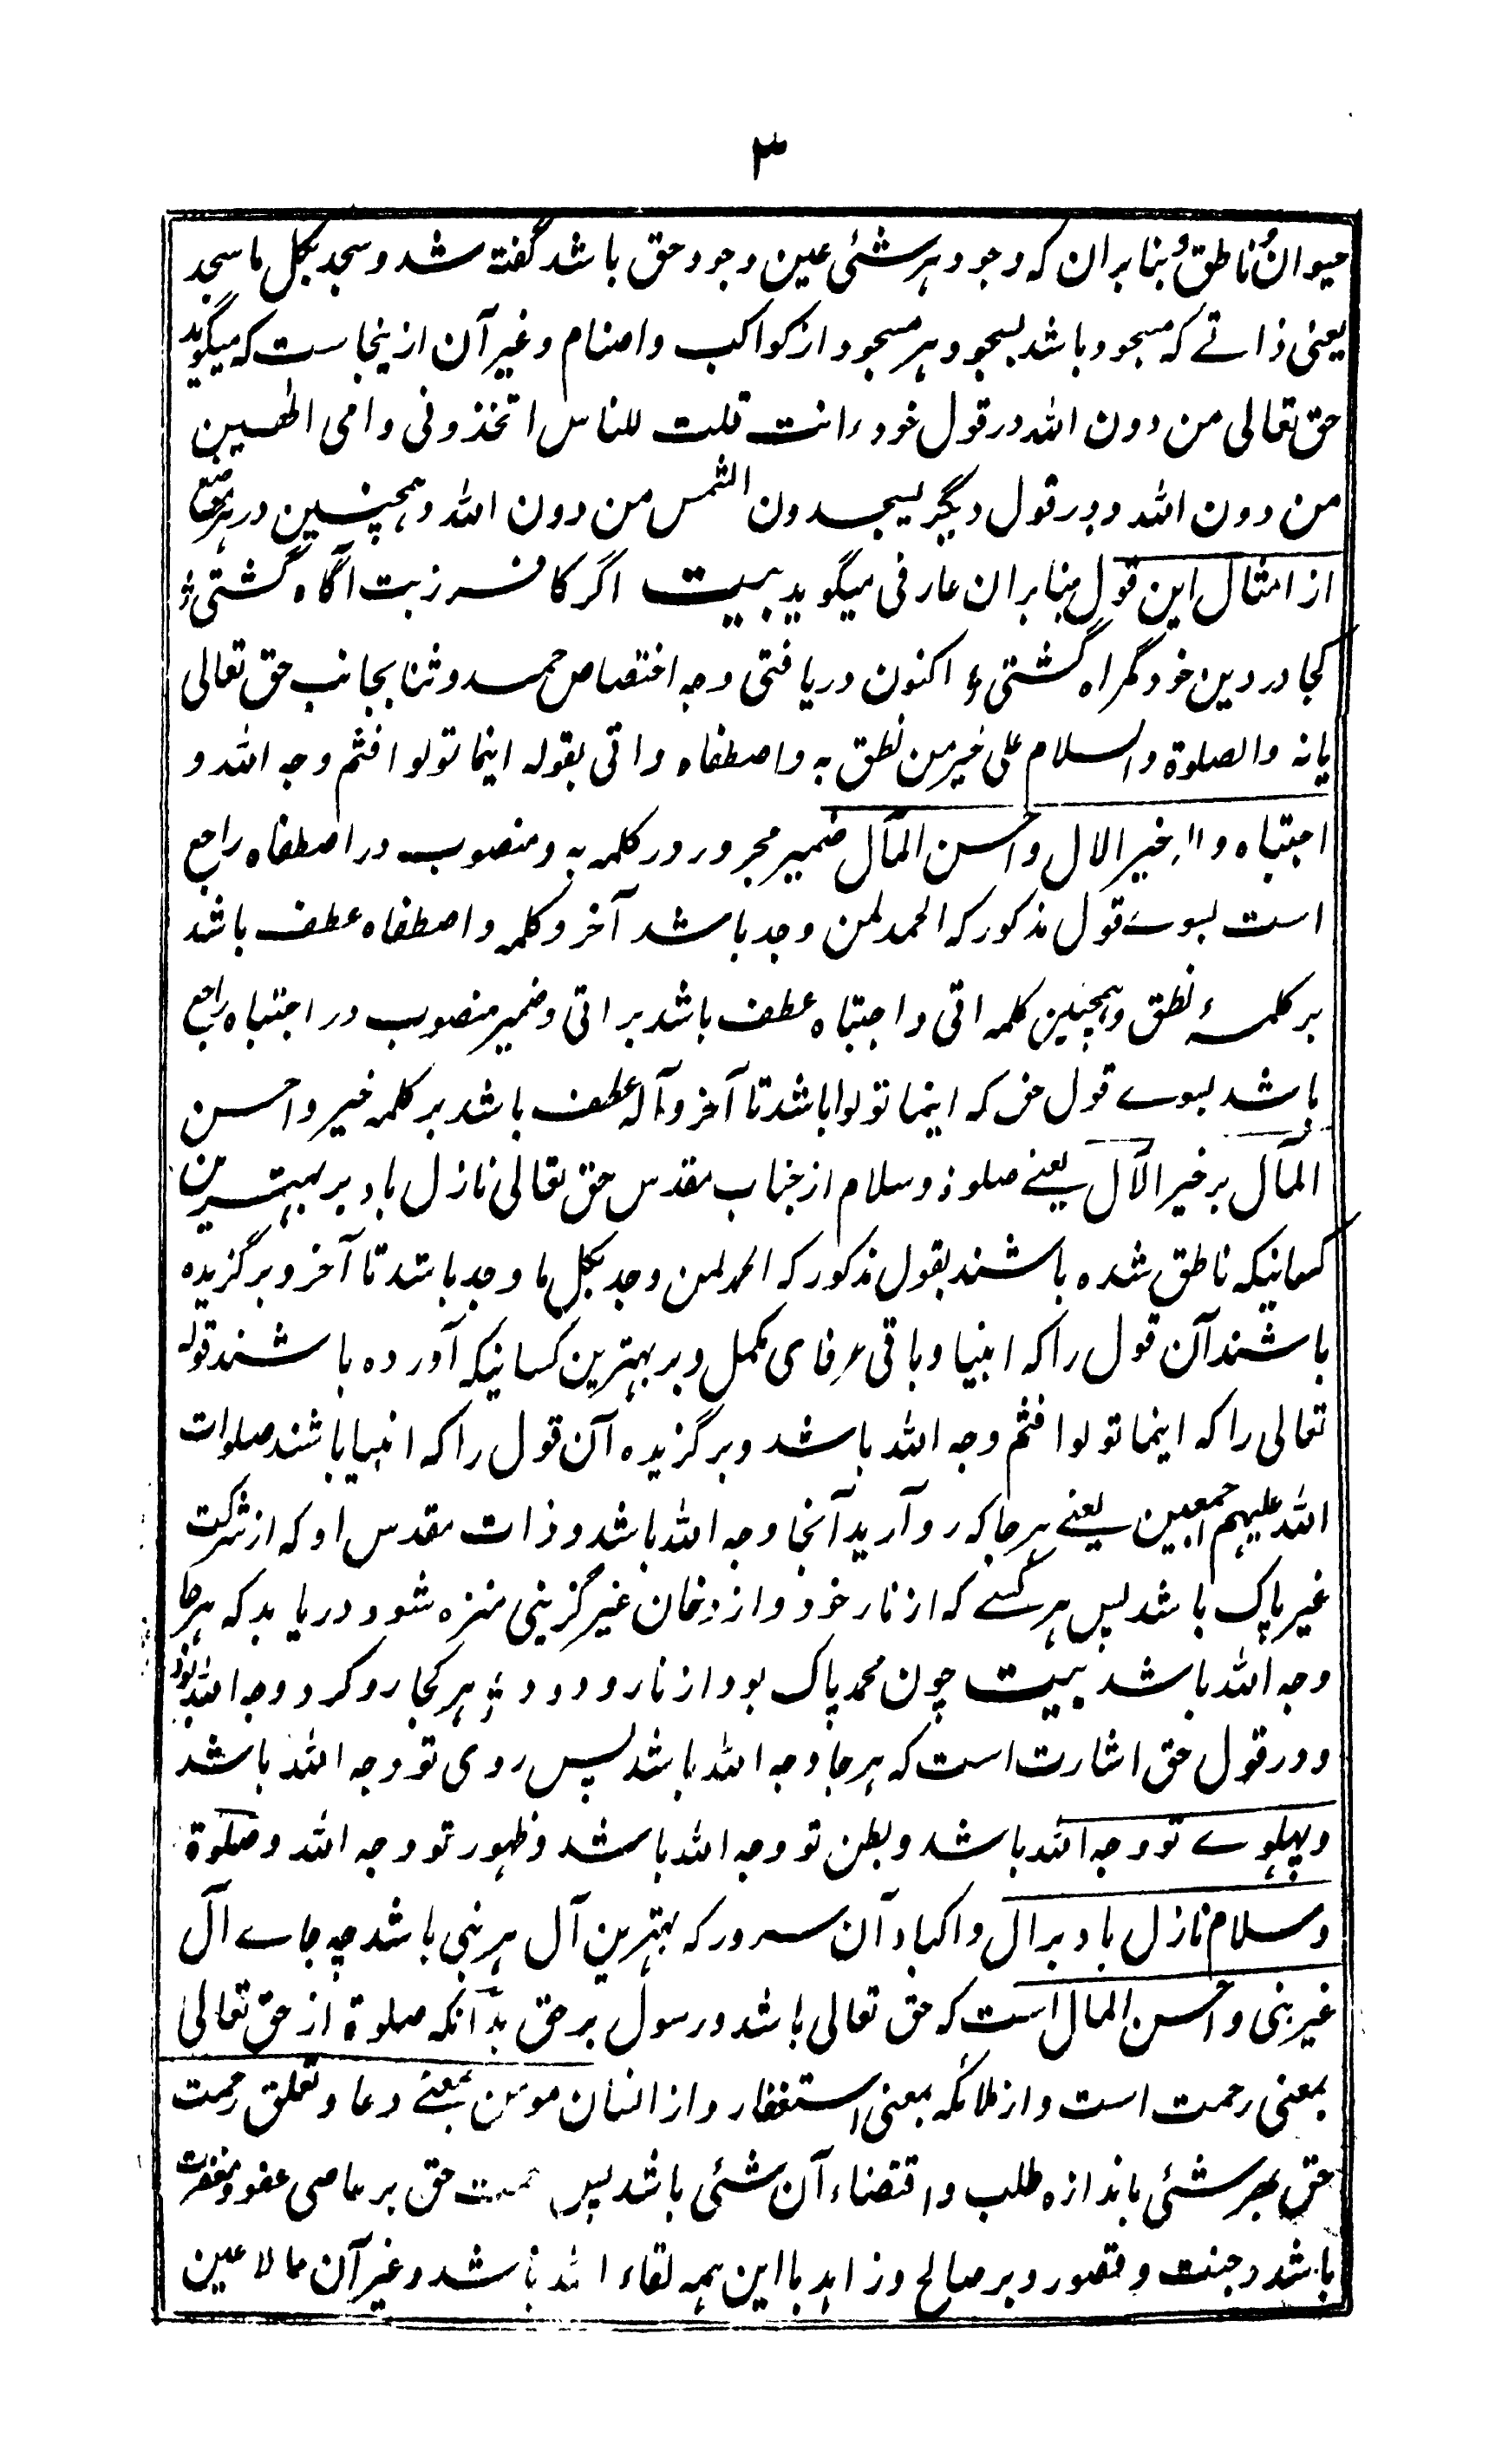 ۳
حیوانٌ ناطقٌ بنابران که وجود هر شئی عین وجود حق باشد گفته شد و سجد بکل ما سجد
یعنی ذاتے که مسجود باشد بسجود هر مسجود از کواکب و اصنام و غیر آن ازینجاست که میگوید
حق تعالی من دون الله در قول خود رانت قلت للناس اتخذونی و امی الٰهین
من دون الله و در قول دیگر یسجدون الشمس من دون الله و همچنین در هر موضع
از امثال این قول بنابران عارفی میگوید بیت اگر کافر ز بت آگاه گشتی ؞
کجا در دین خود گمراه گشتی ؞ اکنون دریافتی وجه اختصاص حمد و ثنا بجانب حق تعالی
یانه والصلوة والسلام علی خیر من نطق به واصطفاه واتی بقوله اینما تولوا فثم وجه الله و
اجتباه و اله خیر الال و احسن المآل ضمیر مجرور در کلمه به و منصوب در اصطفاه راجع
است بسوے قول مذکور که الحمد لمن وجد باشد آخر و کلمه و اصطفاه عطف باشد
بر کلمهٔ نطق و همچنین کلمه اتی و اجتباه عطف باشد بر اتی و ضمیر منصوب در اجتباه راجع
باشد بسوے قول حق که اینما تولوا باشد تا آخر و آله عطف باشد بر کلمه خیر و احسن
المآل بر خیر الآل یعنے صلوة و سلام از جناب مقدس حق تعالی نازل باد بر بهترین
کسانیکه ناطق شده باشند بقول مذکور که الحمد لمن وجد بکل ما وجد باشد تا آخر و برگزیده
باشند آن قول را که انبیا و باقی عرفای مکمل و بر بهترین کسانیکه آورده باشند قوله
تعالی را که اینما تولوا فثم وجه الله باشد و برگزیده آن قول را که انبیا باشند صلوات
الله علیهم اجمعین یعنے هر جا که رو آرید آنجا وجه الله باشد و ذات مقدس او که از شرکت
غیر پاک باشد پس هر کسے که از نار خود و از دخان غیر گزینی منزه شود دریابد که هر جا
وجه الله باشد بیت چون محمد پاک بود از نار و دود ؞ هر کجا رو کرد وجه الله بود
و در قول حق اشارت است که هر جا وجه الله باشد پس روی تو وجه الله باشد
و پهلوے تو وجه الله باشد و بطن تو وجه الله باشد و ظهور تو وجه الله و صلوة
و سلام نازل باد بر ال و اکباد آن سرور که بهترین آل هر نبی باشد چه جاے آل
غیر نبی و احسن المال است که حق تعالی باشد و رسول بر حق بدانکه صلوة از حق تعالی
بمعنی رحمت است و از ملائکه بمعنی استغفار و از انسان مومن بمعنے دعا و تعلق رحمت
حق بهر شئی باندازه طلب و اقتضاء آن شئی باشد پس حق بر عاصی عفو و مغفرت
باشد و جنت و قصور و بر صالح و زاهد با این همه لقاء الله باشد و غیر آن مما لا عین